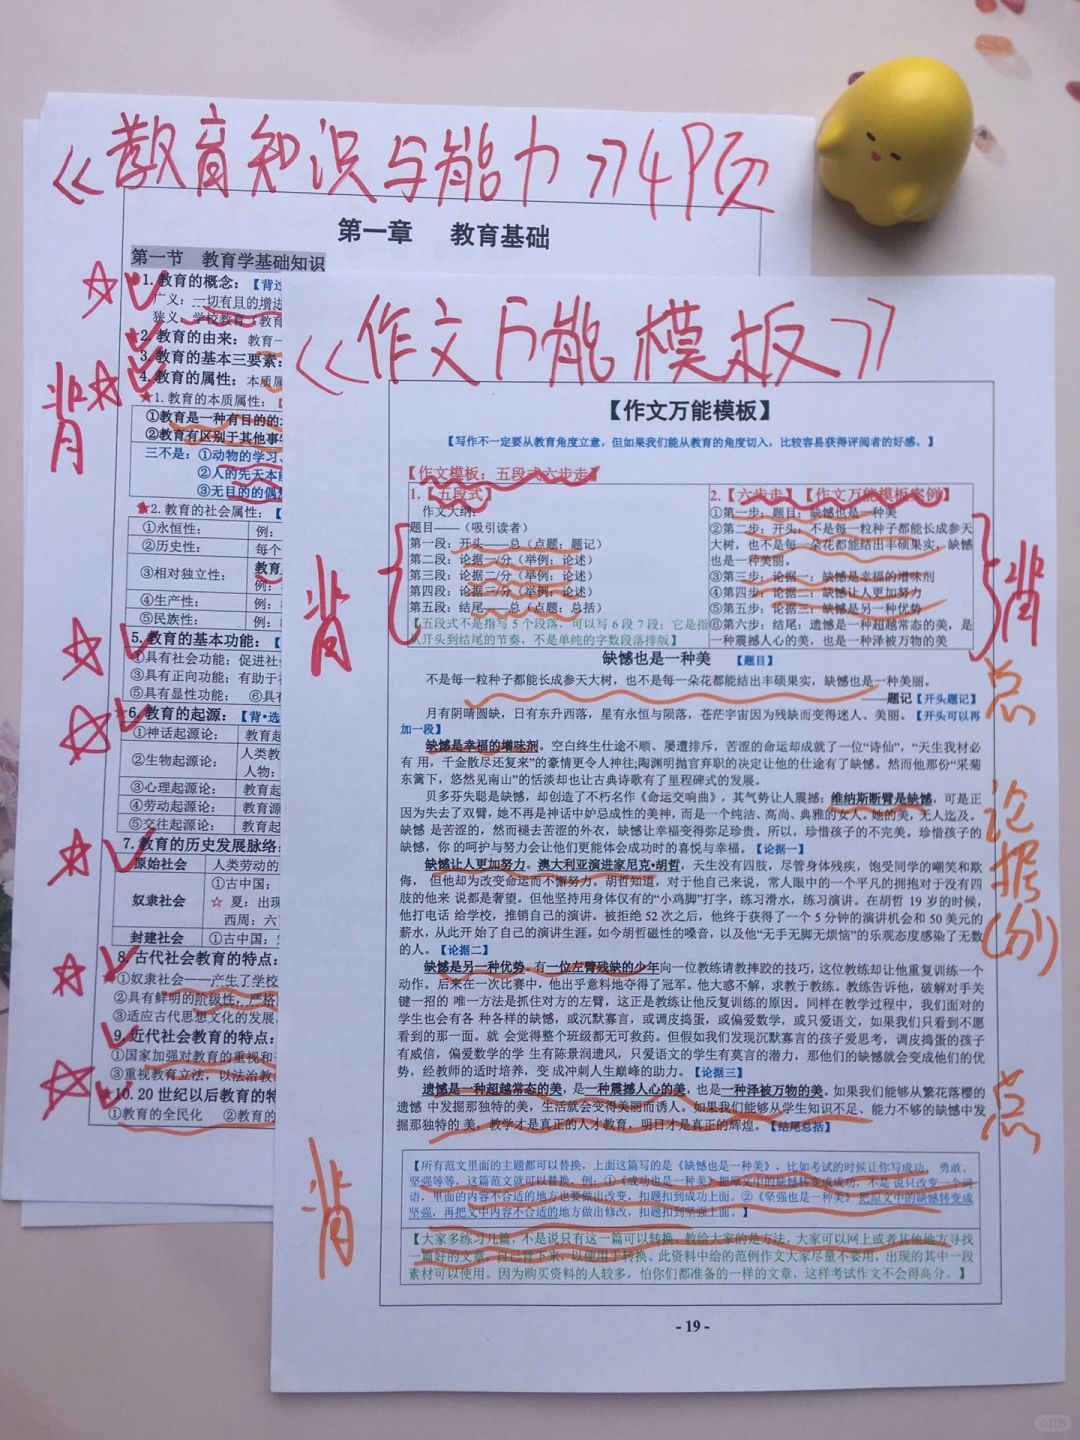 《教育知识与能力》49页
第一章 教育基础
第一节 教育学基础知识
1. 教育的概念：【背过
广义：一切有目的的增进
狭义：学校教育（教育
★2. 教育的由来：教育一
3. 教育的基本三要素：
4. 教育的属性：本质属
★1. 教育的本质属性：【
①教育是一种有目的的
②教育有区别于其他事
三不是：①动物的学习、
②人的先天本能
③无目的的偶然
★2. 教育的社会属性：【
①永恒性： 例：
②历史性： 每个
③相对独立性： 教育
例：
④生产性： 例：
⑤民族性： 例：
5. 教育的基本功能：【
①具有社会功能：促进社
③具有正向功能：有助于
⑤具有显性功能： ⑥具
★6. 教育的起源：【背•选
①神话起源论： 教育起
②生物起源论： 人类教
人物：
③心理起源论： 教育起
④劳动起源论： 教育源
⑤交往起源论： 教育起
7. 教育的历史发展脉络
原始社会 人类劳动的
奴隶社会 ①古中国：
☆ 夏：出现
西周：六
封建社会 ①古中国：
8. 古代社会教育的特点：
★①奴隶社会——产生了学校
②具有鲜明的阶级性，严格
③适应古代思想文化的发展，
9. 近代社会教育的特点：
①国家加强对教育的重视和
③重视教育立法，以法治教
10. 20 世纪以后教育的特
①教育的全民化 ②教育的
背
《作文万能模板》
【作文万能模板】
【写作不一定要从教育角度立意，但如果我们能从教育的角度切入，比较容易获得评阅者的好感。】
【作文模板：五段式六步走】
1.【五段式】
作文大纲：
题目——（吸引读者）
第一段：开头——总（点题：题记）
第二段：论据一/分（举例：论述）
第三段：论据二/分（举例：论述）
第四段：论据三/分（举例：论述）
第五段：结尾——总（点题：总括）
【五段式不是指写 5 个段落，可以写 6 段 7 段；它是指
从开头到结尾的节奏，不是单纯的字数段落排版】
2.【六步走】【作文万能模板案例】
①第一步：题目：缺憾也是一种美
②第二步：开头：不是每一粒种子都能长成参天
大树，也不是每一朵花都能结出丰硕果实，缺憾
也是一种美丽。
③第三步：论据一：缺憾是幸福的增味剂
④第四步：论据二：缺憾让人更加努力
⑤第五步：论据三：缺憾是另一种优势
⑥第六步：结尾：遗憾是一种超越常态的美，是
一种震撼人心的美，也是一种泽被万物的美
背
背
缺憾也是一种美 【题目】
不是每一粒种子都能长成参天大树，也不是每一朵花都能结出丰硕果实，缺憾也是一种美丽。
——题记【开头题记】
月有阴晴圆缺，日有东升西落，星有永恒与陨落，苍茫宇宙因为残缺而变得迷人、美丽。【开头可以再
加一段】
缺憾是幸福的增味剂。空白终生仕途不顺、屡遭排斥，苦涩的命运却成就了一位“诗仙”，“天生我材必
有 用，千金散尽还复来”的豪情更令人神往；陶渊明抛官弃职的决定让他的仕途有了缺憾。然而他那份“采菊
东篱下，悠然见南山”的恬淡却也让古典诗歌有了里程碑式的发展。
贝多芬失聪是缺憾，却创造了不朽名作《命运交响曲》，其气势让人震撼；维纳斯断臂是缺憾，可是正
因为失去了双臂，她不再是神话中妒忌成性的美神，而是一个纯洁、高尚、典雅的女人。她的美，无人迄及。
缺憾 是苦涩的，然而褪去苦涩的外衣，缺憾让幸福变得弥足珍贵。所以，珍惜孩子的不完美。珍惜孩子的
缺憾，你 的呵护与努力会让他们更能体会成功时的喜悦与幸福。【论据一】
缺憾让人更加努力。澳大利亚演进家尼克•胡哲，天生没有四肢，尽管身体残疾，饱受同学的嘲笑和欺
侮， 但他却为改变命运而不懈努力。胡哲知道，对于他自己来说，常人眼中的一个平凡的拥抱对于没有四
肢的他来 说都是奢望。但他坚持用身体仅有的“小鸡脚”打字，练习滑水，练习演讲。在胡哲 19 岁的时候，
他打电话 给学校，推销自己的演讲。被拒绝 52 次之后，他终于获得了一个 5 分钟的演讲机会和 50 美元的
薪水，从此开 始了自己的演讲生涯。如今胡哲磁性的嗓音，以及他“无手无脚无烦恼”的乐观态度感染了无数
的人。【论据二】
缺憾是另一种优势。有一位左臂残缺的少年向一位教练请教摔跤的技巧，这位教练却让他重复训练一个
动作。后来在一次比赛中，他出乎意料地夺得了冠军。他大惑不解，求教于教练。教练告诉他，破解对手关
键一招的 唯一方法是抓住对方的左臂，这正是教练让他反复训练的原因。同样在教学过程中，我们面对的
学生也会有各 种各样的缺憾，或沉默寡言，或调皮捣蛋，或偏爱数学，或只爱语文，如果我们只看到不愿
看到的那一面。就 会觉得整个班级都无可救药。但假如我们发现沉默寡言的孩子爱思考，调皮捣蛋的孩子
有威信，偏爱数学的学 生有陈景润遗风，只爱语文的学生有莫言的潜力，那他们的缺憾就会变成他们的优
势，经教师的适时培养，变 成冲刺人生巅峰的助力。【论据三】
遗憾是一种超越常态的美，是一种震撼人心的美，也是一种泽被万物的美。如果我们能够从繁花落樱的
遗憾 中发掘那独特的美，生活就会变得美丽而诱人。如果我们能够从学生知识不足、能力不够的缺憾中发
掘那独特的 美，教学才是真正的人才教育，明日才是真正的辉煌。【结尾总括】
点
论据(分)
点
【所有范文里面的主题都可以替换，上面这篇写的是《缺憾也是一种美》，比如考试的时候让你写成功，勇敢，
坚强等等，这篇范文就可以替换。例：①《成功也是一种美》把原文中的缺憾转变成成功，不是说只改变一个词
语，里面的内容不合适的地方也要做出改变，扣题扣到成功上面。②《坚强也是一种美》把原文中的缺憾转变成
坚强，再把文中内容不合适的地方做出修改，扣题扣到坚强上面。】
【大家多练习几篇，不是说只有这一篇可以转换，教给大家的是方法，大家可以网上或者其他地方寻找
一篇好的文章，自己背下来，以便用于转换。此资料中给的范例作文大家尽量不要用，出现的其中一段
素材可以使用。因为购买资料的人较多，怕你们都准备的一样的文章，这样考试作文不会得高分。】
背
- 19 -
小红书